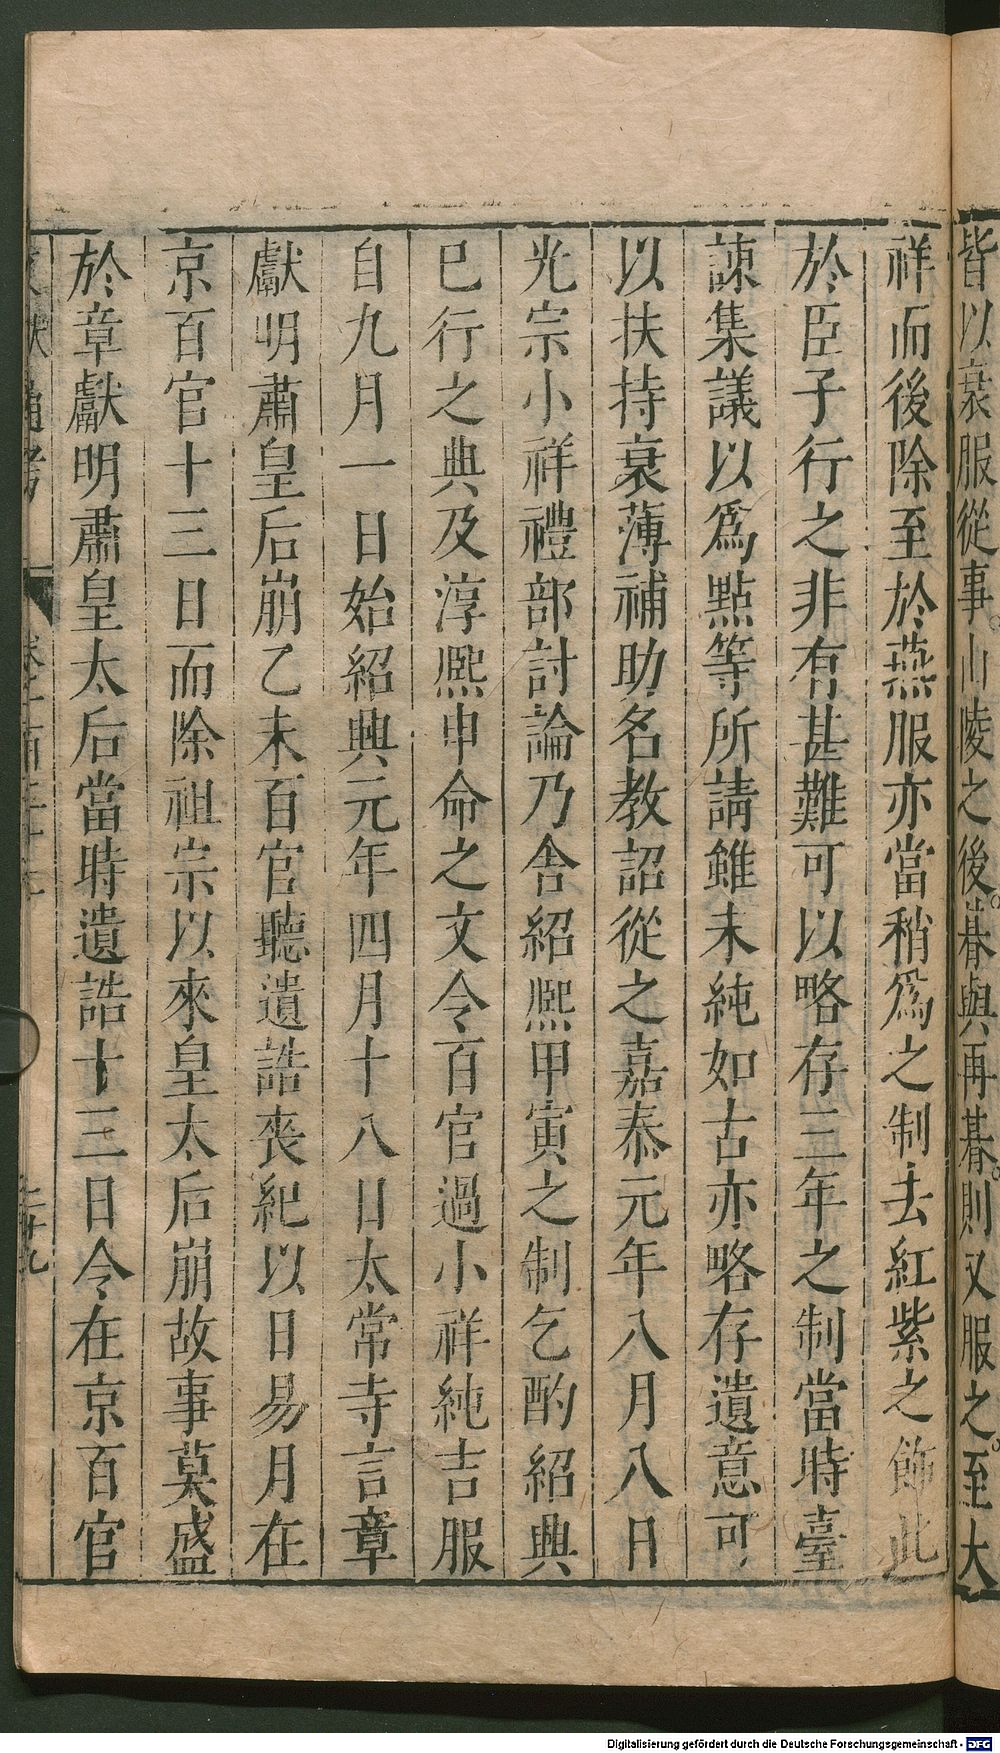 皆以衰服從事山陵之後朞與再朞則又服之至大
祥而後除至於燕服亦當稍爲之制去紅紫之飾此
於臣子行之非有甚難可以略存三年之制當時臺
諫集議以爲點等所請雖未純如古亦略存遺意可
以扶持衰薄補助名教詔從之嘉泰元年八月八日
光宗小祥禮部討論乃舍紹熙甲寅之制乞酌紹興
已行之典及淳熙申命之文令百官過小祥純吉服
自九月一日始紹興元年四月十八日太常寺言章
獻明肅皇后崩乙未百官聽遺誥喪紀以日易月在
京百官十三日而除祖宗以來皇太后崩故事莫盛
於章獻明肅皇太后當時遺誥十三日令在京百官
文獻通考 卷一百二十二 二十九
Digitalisierung gefördert durch die Deutsche Forschungsgemeinschaft - DFG